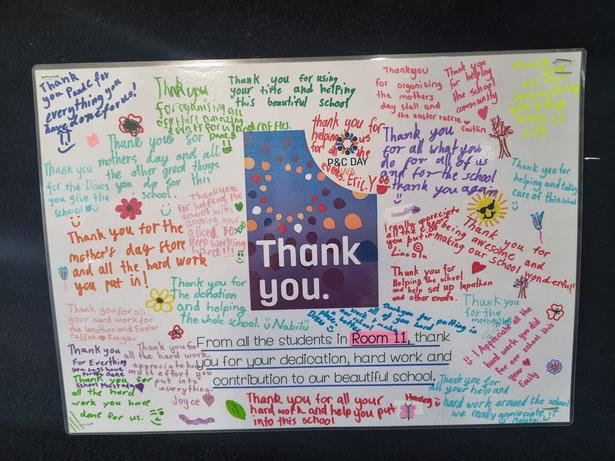 Thank
you P&C for
everything you
have done for us!
Thank you
for organising all
Thank you for using
your time and helping
this beautiful school
Thankyou
for organising
the mothers
day stall and
the easter raffle
Caitlin
Thank you
for helping
the school
community
Thank you for
mothers day and all
the other great things
you do for this
school.
thank you for
helping us
for all the
events. Eric.Y
P&C DAY
WA
Thank you
for all what you
do for all of us
and for the school
thank you again
Thank you
for the
you give the
school
Thank you for
helping and taking
care of this school
Thankyou
for helping the
school with
anything your
asked for
keep working
hard!!!
Thank you for the
mother's day store
and all the hard work
you put in!
Thank
you.
I really appreciate
all the
you put in
Lincoln
Thank you for
being awesome and
making our school wonderful!!
Thank you for
Helping the school
and help set up lepathon
and other events.
Thank you for
the donation
and helping
the whole school. Nabil
Thank you
for the
mothers
Thank you for all
your hard work for
the lapathon and Easter
raffle Freya.
thank you for putting in
all of your hard
I Appreciate all the
hard work you did
for our
Emily
From all the students in Room 11, thank
you for your dedication, hard work and
contribution to our beautiful school.
Thank you
For Everthing
you
Thank you for
all the hard
work you have
done for us.
Thank you for
all the hard work.
appreciate
effort you
put into
everything
Joyce
Thank you for all your
hard work and help you put
into this school
Thank you for
all your help and
hard work around the school
we really appreciate it